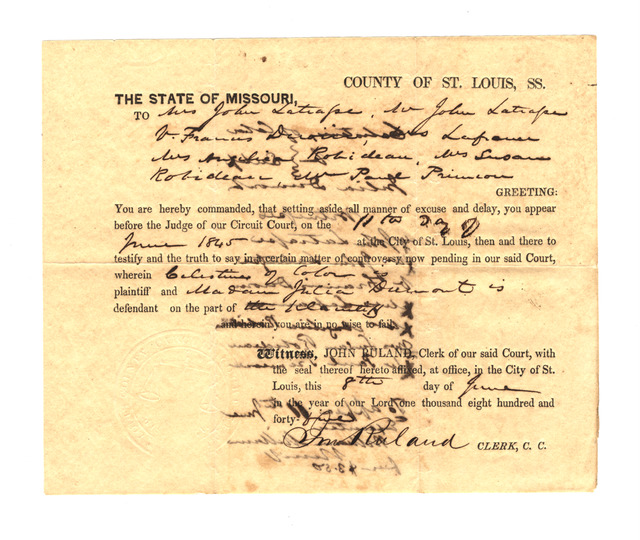 COUNTY OF ST. LOUIS, SS.
THE STATE OF MISSOURI,
TO Mrs John Latrape, Mr John Latrape
V. Francis Lafaver
Mrs Angelica Robideau, Mrs Susan
Robideau & Mr Paul Primeau
GREETING:
You are hereby commanded, that setting aside all manner of excuse and delay, you appear
before the Judge of our Circuit Court, on the 11th Day of
June 1845 at the City of St. Louis, then and there to
testify and the truth to say in a certain matter of controversy now pending in our said Court,
wherein Celestine of Color is
plaintiff and Madam Julia Dumont is
defendant on the part of the Plaintiff
and herein you are in no wise to fail.
Witness, JOHN RULAND, Clerk of our said Court, with
the seal thereof hereto affixed, at office, in the City of St.
Louis, this 8th day of June
in the year of our Lord one thousand eight hundred and
forty-five
Jno Ruland CLERK, C. C.